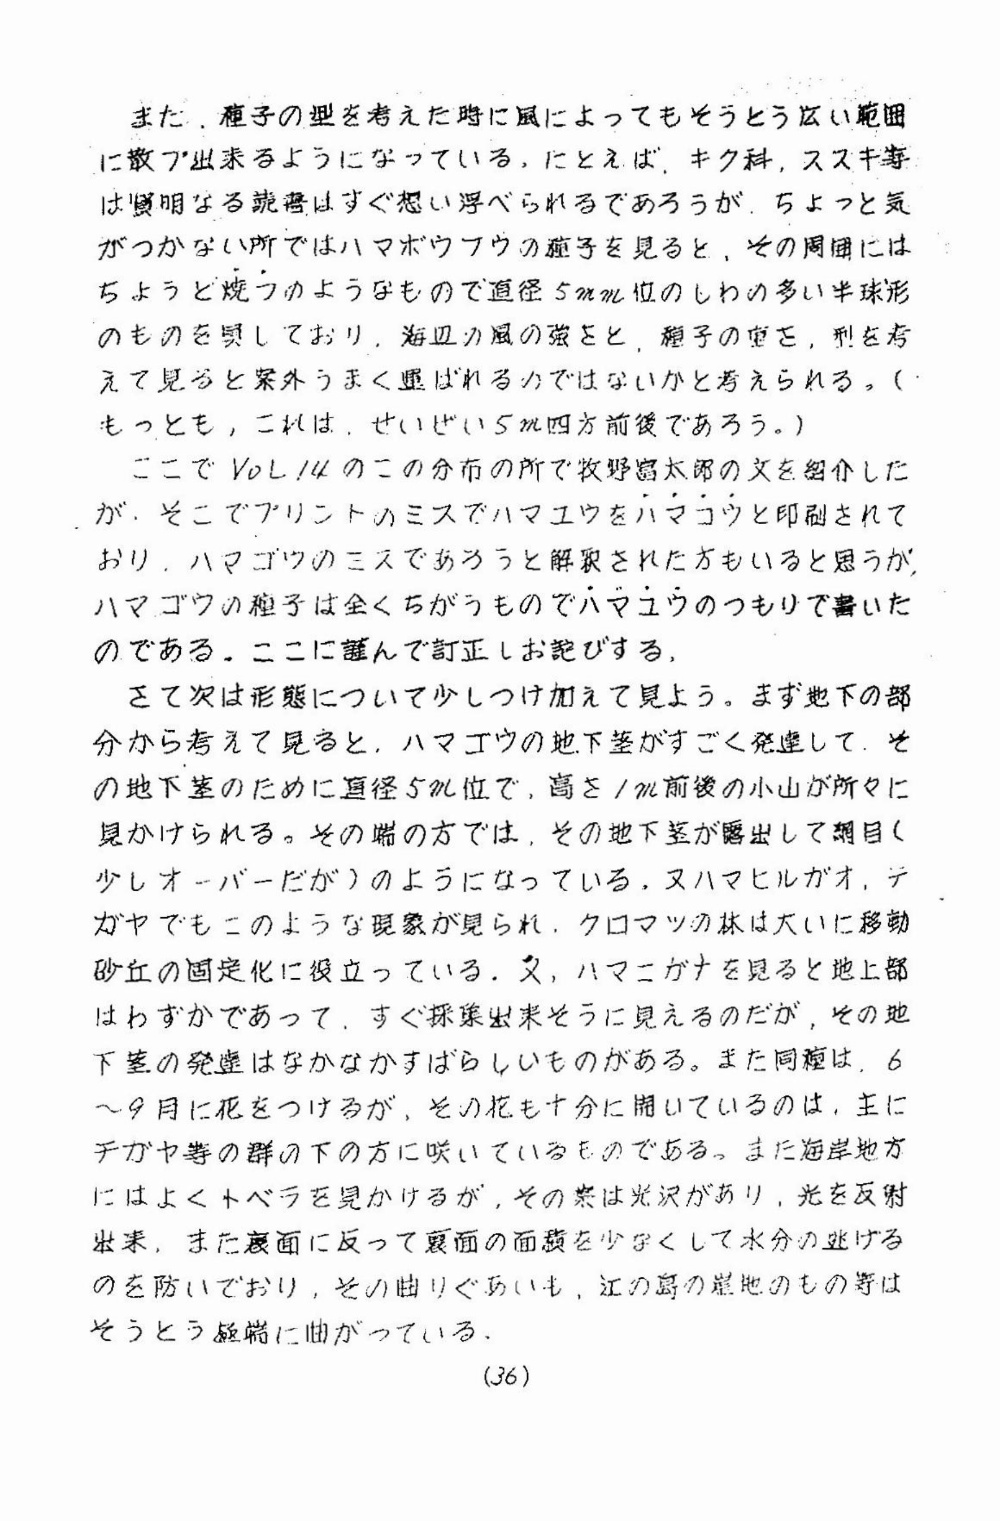 また、種子の型を考えた時に風によってもそうとう広い範囲
に散プ出来るようになっている。たとえば、キク科、ススキ等
は賢明なる読者はすぐ想い浮べられるであろうが、ちょっと気
がつかない所ではハマボウフウの種子を見ると、その周囲には
ちょうど焼フのようなもので直径5mm位のしわの多い半球形
のものを具しており、海辺の風の強さと、種子の重さ、型を考
えて見ると案外うまく運ばれるのではないかと考えられる。(
もっとも、これは、せいぜい5m四方前後であろう。)
ここでVOL14のこの分布の所で牧野富太郎の文を紹介した
が、そこでプリントのミスでハマユウをハマコウと印刷されて
おり、ハマゴウのミスであろうと解釈された方もいると思うが、
ハマゴウの種子は全くちがうものでハマユウのつもりで書いた
のである。ここに謹んで訂正しお詫びする。
さて次は形態について少しつけ加えて見よう。まず地下の部
分から考えて見ると、ハマゴウの地下茎がすごく発達して、そ
の地下茎のために直径5m位で、高さ1m前後の小山が所々に
見かけられる。その端の方では、その地下茎が露出して網目(
少しオーバーだが)のようになっている。又ハマヒルガオ、チ
ガヤでもこのような現象が見られ、クロマツの林は大いに移動
砂丘の固定化に役立っている。又、ハマニガナを見ると地上部
はわずかであって、すぐ採集出来そうに見えるのだが、その地
下茎の発達はなかなかすばらしいものがある。また同種は、6
～9月に花をつけるが、その花も十分に開いているのは、主に
チガヤ等の群の下の方に咲いているものである。また海岸地方
にはよくトベラを見かけるが、その葉は光沢があり、光を反射
出来、また裏面に反って裏面の面積を少なくして水分の逃げる
のを防いでおり、その曲りぐあいも、江の島の崖地のもの等は
そうとう極端に曲がっている。
(36)